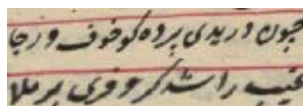 چون دریدی پرده کو خوف و رجا
غیب را شد کر و فری بر ملا